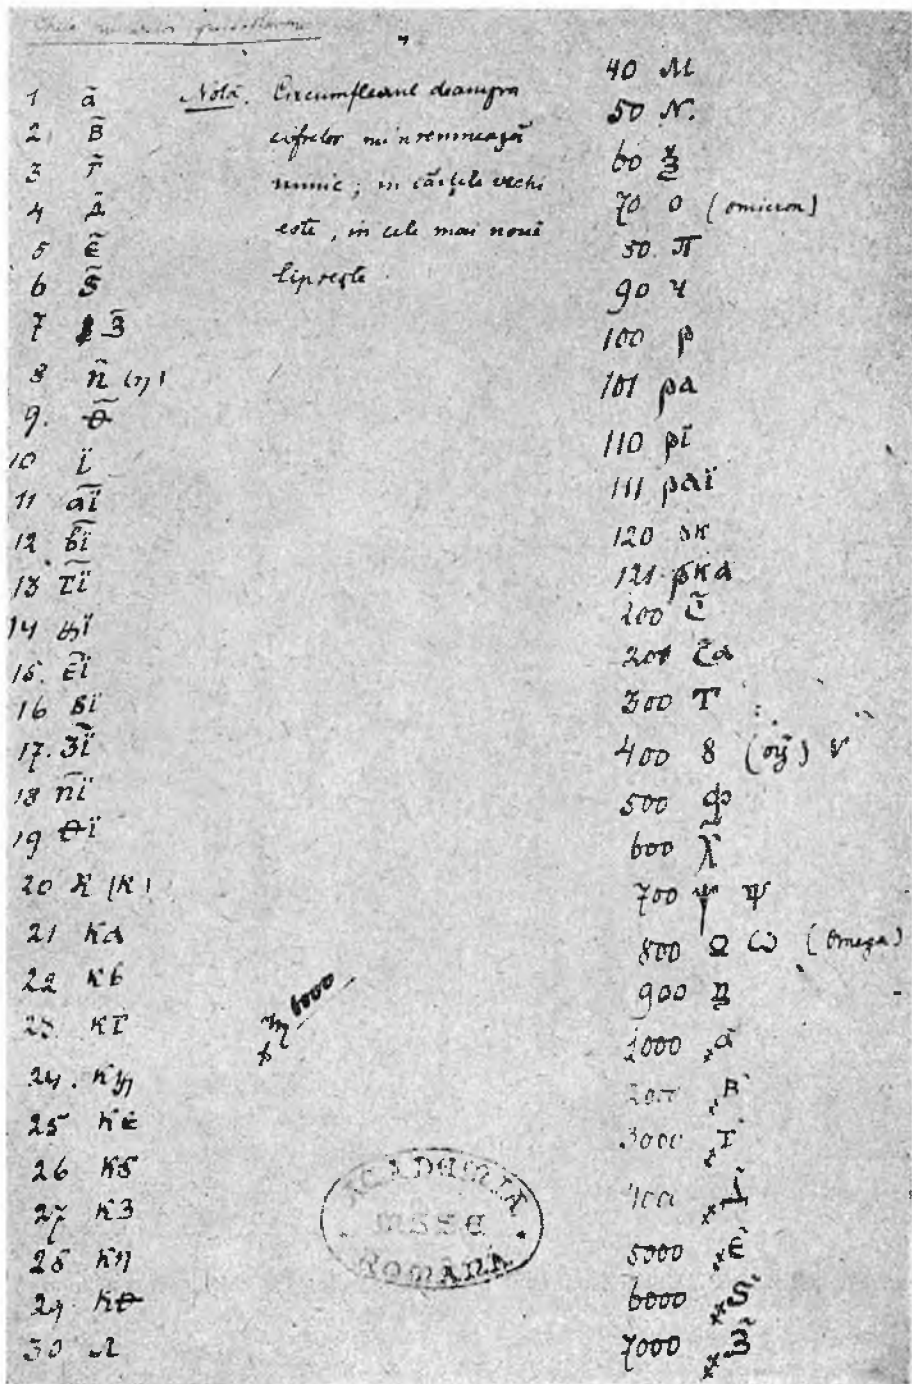 1 а̃
2 в̃
3 г̃
4 д̃
5 є̃
6 ѕ̃
7 з̃
8 н̃ (η)
9. ѳ̃
10 ї
11 аї
12 вї
13 гї
14 дї
15. єї
16 ѕї
17. зї
18 нї
19 ѳї
20 к (к)
21 ка
22 кв
23. кг
24. кд
25 кє
26 кѕ
27 кз
28 кн
29 кѳ
30 л
Notă. Circumflexul deasupra
cifrelor nu însemnează
nimic; în cărțile vechi
este, în cele mai nouă
lipsește.
6000
ACADEMIA
MSSE
ROMÂNĂ
40 м
50 н.
60 ѯ
70 о (omicron)
80. п
90 ч
100 р
101 ра
110 рї
111 раї
120 рк
121. рка
200 с̃
201 с̃а
300 т
400 ȣ (оу̃) ѵ
500 ф
600 х̃
700 ѱ ѱ
800 Ω ѡ (Omega)
900 ц
1000 ҂а
2000 ҂в
3000 ҂г
4000 ҂д
5000 ҂є
6000 ҂ѕ
7000 ҂з